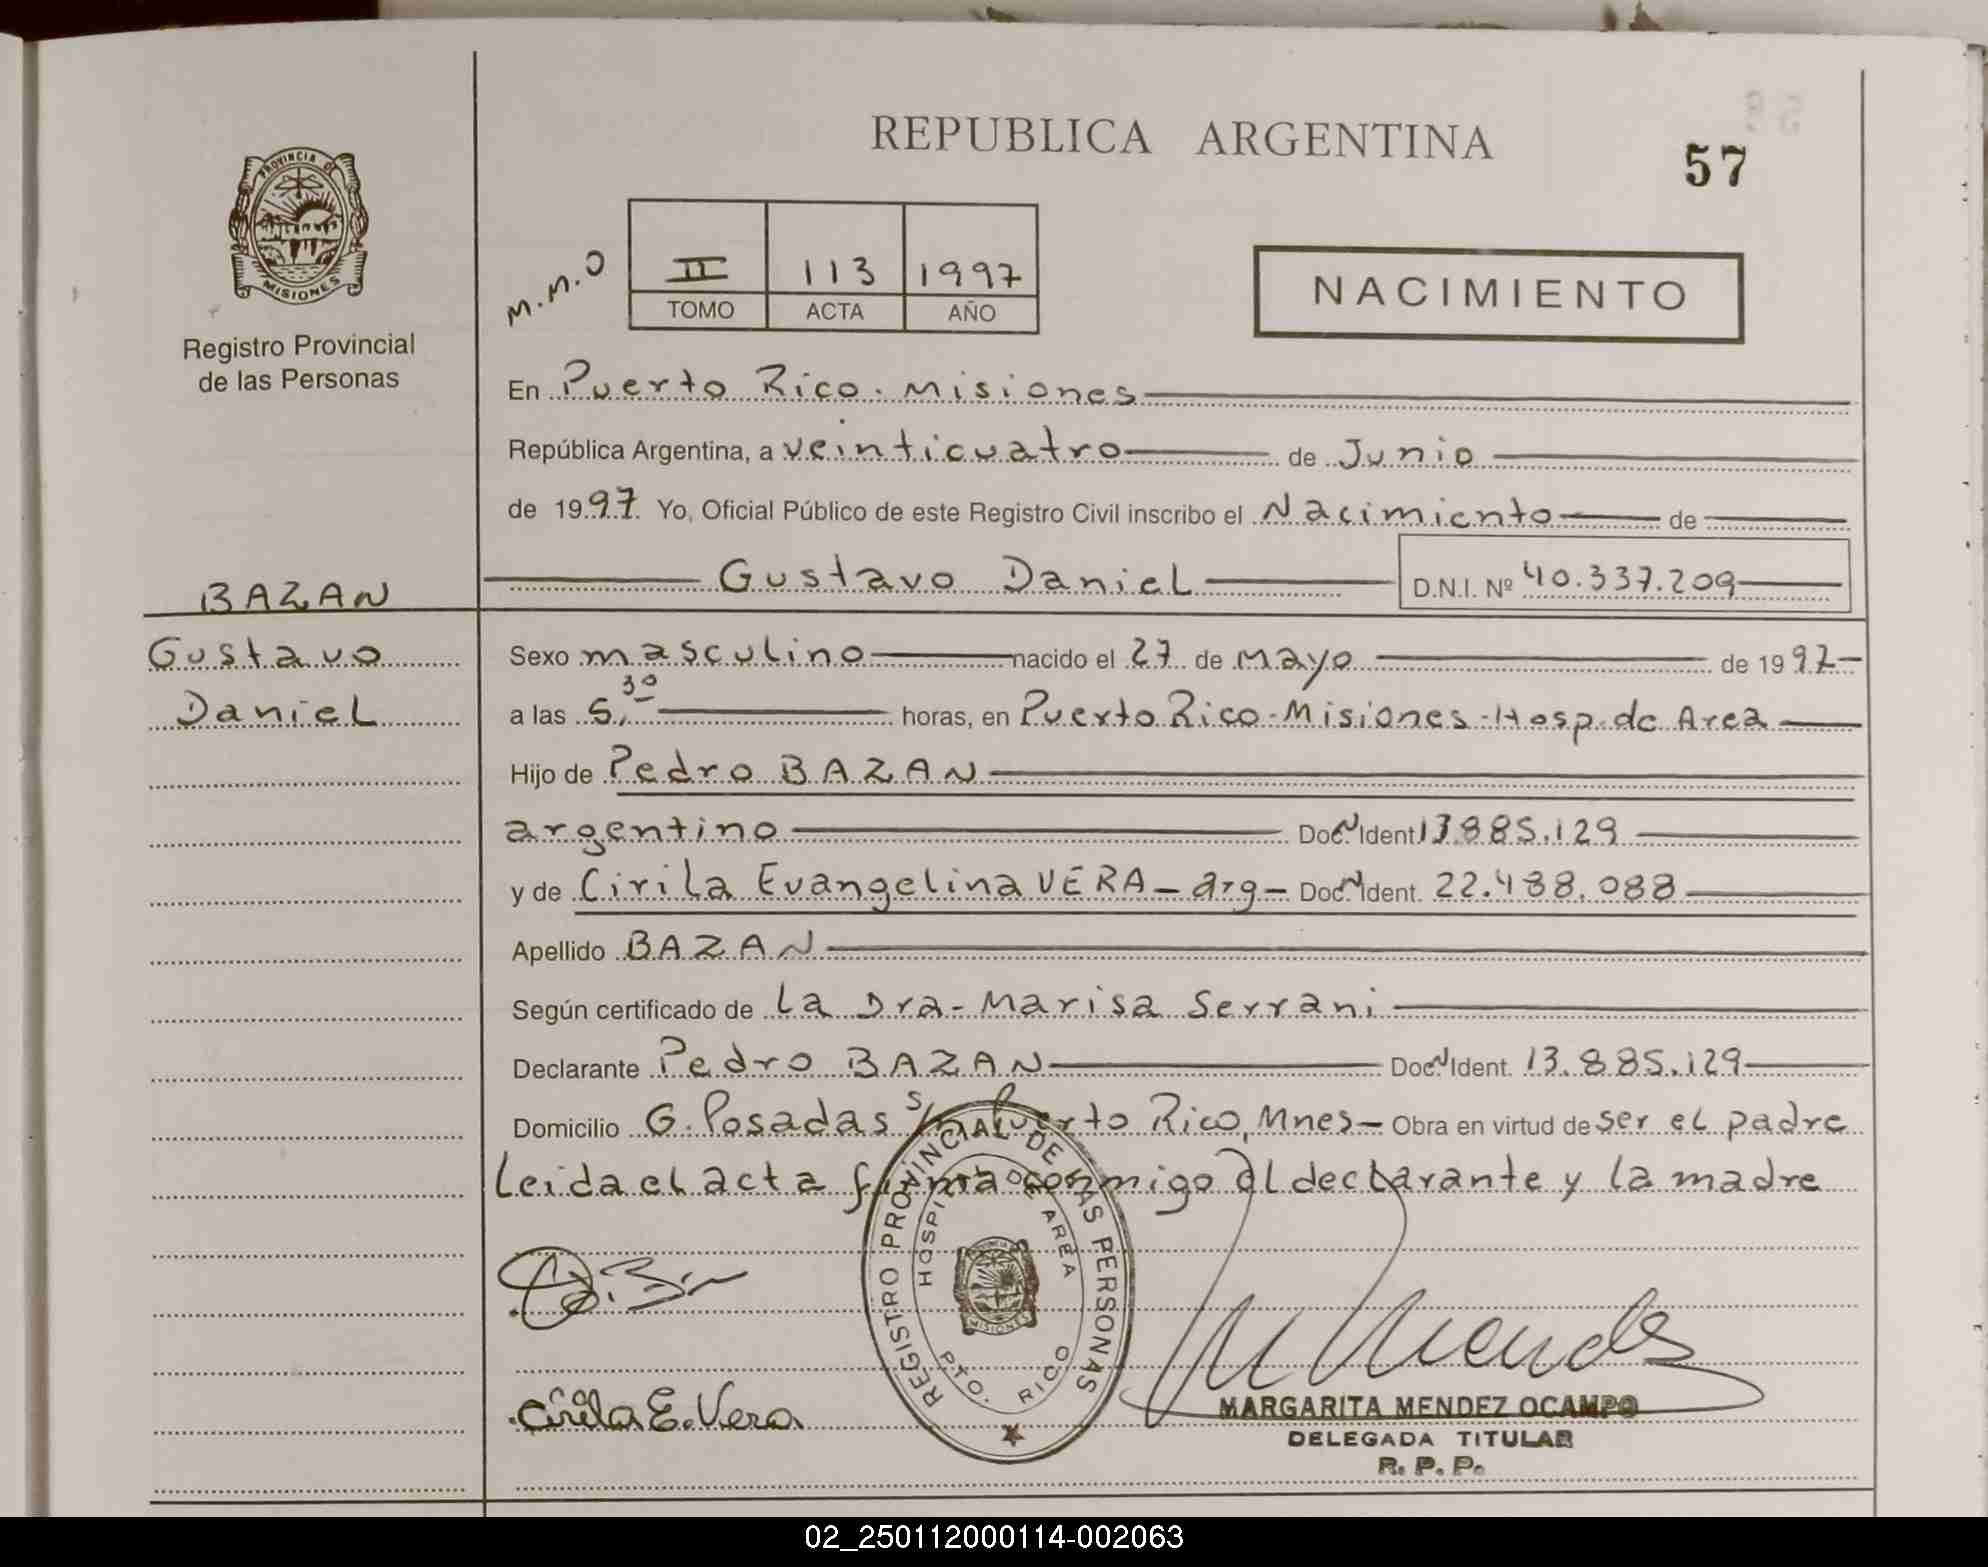 REPUBLICA ARGENTINA
57
PROVINCIA DE
MISIONES
Registro Provincial
de las Personas
M.M.O
II 113 1997
TOMO ACTA AÑO
NACIMIENTO
En Puerto Rico. Misiones
República Argentina, a veinticuatro de Junio
de 1997 Yo, Oficial Público de este Registro Civil inscribo el Nacimiento de
Gustavo Daniel D.N.I. Nº 40.337.209
BAZAN
Gustavo
Daniel
Sexo masculino nacido el 27 de Mayo de 1997
a las 5,30 horas, en Puerto Rico-Misiones-Hosp. de Area
Hijo de Pedro BAZAN
argentino Doc. Ident 13.885.129
y de Cirila Evangelina VERA - arg - Doc. Ident. 22.488.088
Apellido BAZAN
Según certificado de la Dra- Marisa Serrani
Declarante Pedro BAZAN Doc. Ident. 13.885.129
Domicilio G. Posadas s/n Puerto Rico, Mnes- Obra en virtud de ser el padre
Leida el acta firma conmigo el declarante y la madre
REGISTRO PROVINCIAL DE LAS PERSONAS
HOSPITAL DE AREA
MISIONES
PTO. RICO
Cirila E. Vera
M Mendez
MARGARITA MENDEZ OCAMPO
DELEGADA TITULAR
R. P. P.
02_250112000114-002063